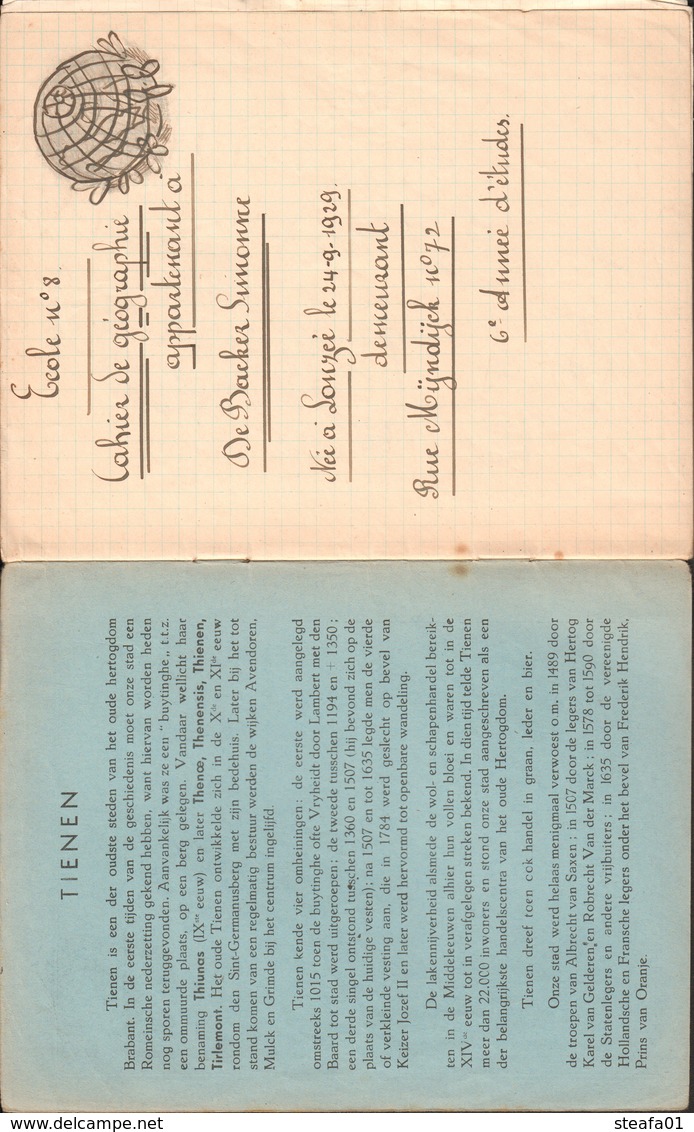 Ecole n° 8.
Cahier de géographie
appartenant à
De Backer Simonne
Née à Lonzée le 24-9-1929.
demeurant
Rue Mÿndijck n° 72
6e Année d'études.
TIENEN
Tienen is een der oudste steden van het oude hertogdom
Brabant. In de eerste tijden van de geschiedenis moet onze stad een
Romeinsche nederzetting gekend hebben, want hiervan worden heden
nog sporen teruggevonden. Aanvankelijk was ze een "buytinghe„ t.t.z.
een ommuurde plaats, op een berg gelegen. Vandaar wellicht haar
benaming Thiunas (IXde eeuw) en later Thenœ, Thenensis, Thienen,
Tirlemont. Het oude Tienen ontwikkelde zich in de Xde en XIde eeuw
rondom den Sint-Germanusberg met zijn bedehuis. Later bij het tot
stand komen van een regelmatig bestuur werden de wijken Avendoren,
Mulck en Grimde bij het centrum ingelijfd.
Tienen kende vier omheiningen: de eerste werd aangelegd
omstreeks 1015 toen de buytinghe ofte Vryheidt door Lambert met den
Baard tot stad werd uitgeroepen; de tweede tusschen 1194 en + 1350;
een derde singel ontstond tusschen 1360 en 1507 (hij bevond zich op de
plaats van de huidige vesten); na 1507 en tot 1635 legde men de vierde
of verkleinde vesting aan, die in 1784 werd geslecht op bevel van
Keizer Jozef II en later werd hervormd tot openbare wandeling.
De lakennijverheid alsmede de wol- en schapenhandel bereik-
ten in de Middeleeuwen alhier hun vollen bloei en waren tot in de
XIVde eeuw tot in verafgelegen streken bekend. In dien tijd telde Tienen
meer dan 22.000 inwoners en stond onze stad aangeschreven als een
der belangrijkste handelscentra van het oude Hertogdom.
Tienen dreef toen ook handel in graan, leder en bier.
Onze stad werd helaas menigmaal verwoest o.m. in 1489 door
de troepen van Albrecht van Saxen; in 1507 door de legers van Hertog
Karel van Gelderen en Robrecht Van der Marck; in 1578 tot 1590 door
de Statenlegers en andere vrijbuiters; in 1635 door de vereenigde
Hollandsche en Fransche legers onder het bevel van Frederik Hendrik,
Prins van Oranje.
delcampe.net
steafa01